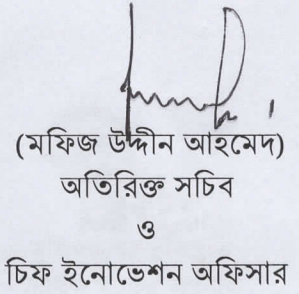 (মফিজ উদ্দীন আহমেদ)
অতিরিক্ত সচিব
ও
চিফ ইনোভেশন অফিসার